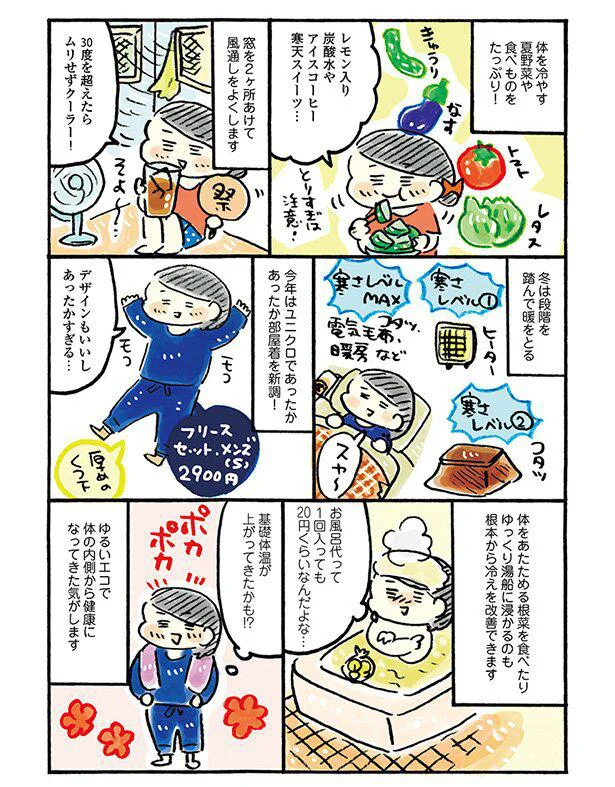 体を冷やす
夏野菜や
食べものを
たっぷり!
きゅうり
なす
トマト
レタス
レモン入り
炭酸水や
アイスコーヒー
寒天スイーツ…
とりすぎは
注意!
窓を2ヶ所あけて
風通しをよくします
30度を超えたら
ムリせずクーラー!
祭
そよ〜
冬は段階を
踏んで暖をとる
寒さ
レベル①
ヒーター
寒さ
レベル②
コタツ
寒さレベル
MAX
コタツ、
電気毛布、
暖房など
スヤ〜
今年はユニクロであったか
あったか部屋着を新調!
デザインもいいし
あったかすぎる…
モコ
モコ
フリース
セット・メンズ
(S)
2900円
厚めの
くつ下
体をあたためる根菜を食べたり
ゆっくり湯船に浸かるのも
根本から冷えを改善できます
お風呂代って
1回入っても
20円くらいなんだよな…
基礎体温が
上がってきたかも!?
ポカ
ポカ
ゆるいエコで
体の内側から健康に
なってきた気がします